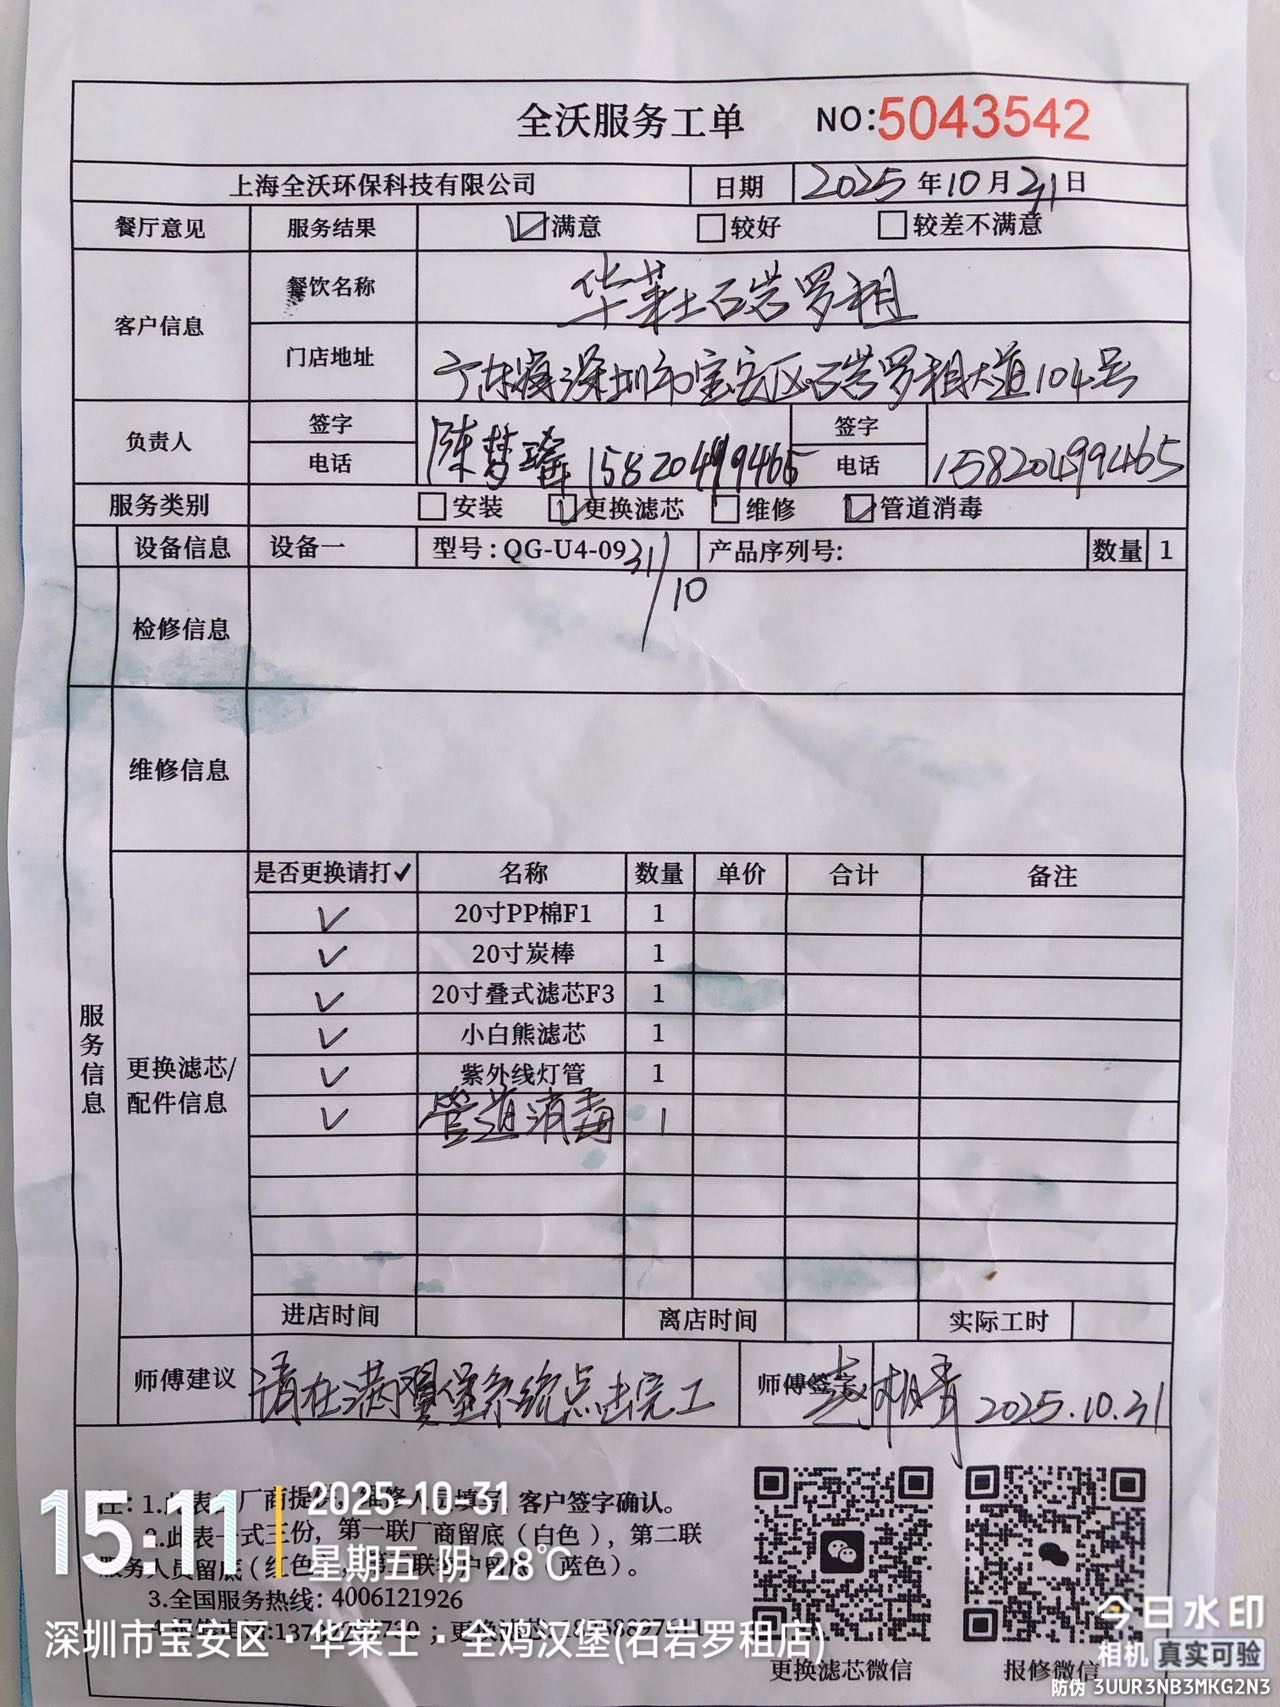 全沃服务工单 NO:5043542
上海全沃环保科技有限公司 日期 2025年10月31日
餐厅意见 服务结果 满意 较好 较差不满意
客户信息 餐饮名称 华莱士石岩罗租
门店地址 广东省深圳市宝安区石岩罗租大道104号
负责人 签字 陈梦 签字
电话 15820499465 电话 15820499465
服务类别 安装 更换滤芯 维修 管道消毒
设备信息 设备一 型号:QG-U4-09 产品序列号: 数量 1
31/10
检修信息
维修信息
服务信息
更换滤芯/配件信息
是否更换请打✓ 名称 数量 单价 合计 备注
✓ 20寸PP棉F1 1
✓ 20寸炭棒 1
✓ 20寸叠式滤芯F3 1
✓ 小白熊滤芯 1
✓ 紫外线灯管 1
✓ 管道消毒 1
进店时间 离店时间 实际工时
师傅建议 请在满翼堡系统点击完工 师傅签字 2025.10.31
注:1.此表 厂商提 填写,客户签字确认。
2.此表一式三份,第一联厂商留底(白色),第二联
服务人员留底(红色 第三联客户留底 蓝色)。
3.全国服务热线:4006121926
更换滤芯微信 报修微信
15:11 2025-10-31
星期五 阴 28℃
深圳市宝安区·华莱士·全鸡汉堡(石岩罗租店)
今日水印
相机 真实可验
防伪 3UUR3NB3MKG2N3